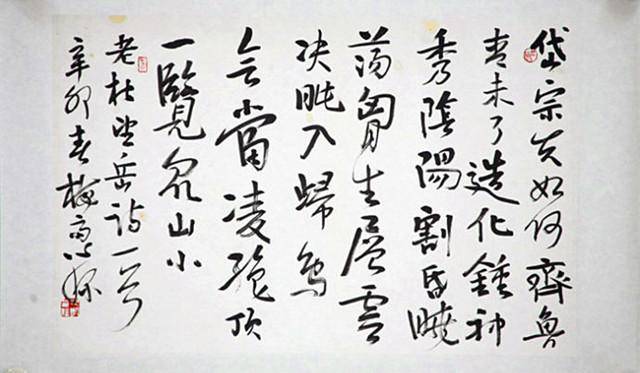 岱宗夫如何齊魯
青未了造化鍾神
秀陰陽割昏曉
蕩胸生層雲
决眦入歸鳥
会當凌絶頂
一覽众山小
老杜望岳詩一首
辛卯春梅